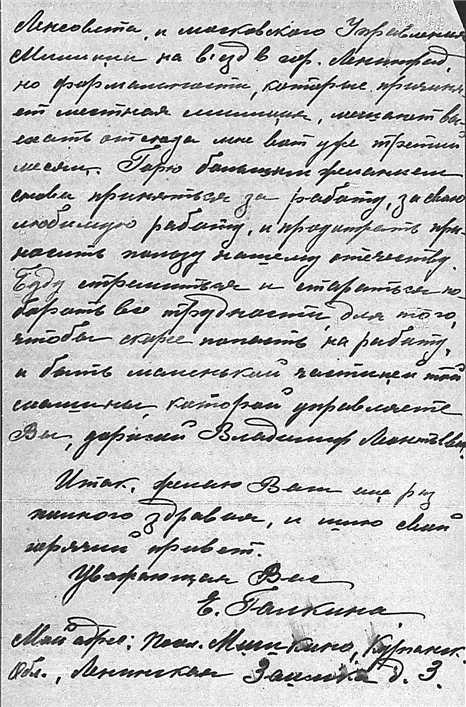 Ленсовета, и московского Управления
Милиции на в'езд в гор. Ленинград,
но формальности, которые применя-
ет местная милиция, мешают вы-
ехать отсюда мне вот уже третий
месяц. Горю большим желанием
снова приняться за работу, за свою
любимую работу, и продолжать при-
носить пользу нашему отечеству.
Буду стремиться и стараться по-
бороть все трудности, для того,
чтобы скорее попасть на работу,
и быть маленькой частицей той
машины, которой управляете
Вы, дорогой Владимир Леонтьевич.
Итак, желаю Вам еще раз
полного здравия, и шлю свой
горячий привет.
Уважающая Вас
Е. Галкина
Мой адрес: Посел. Мишкино, Курганск.
Обл., Ленинская д. 3.